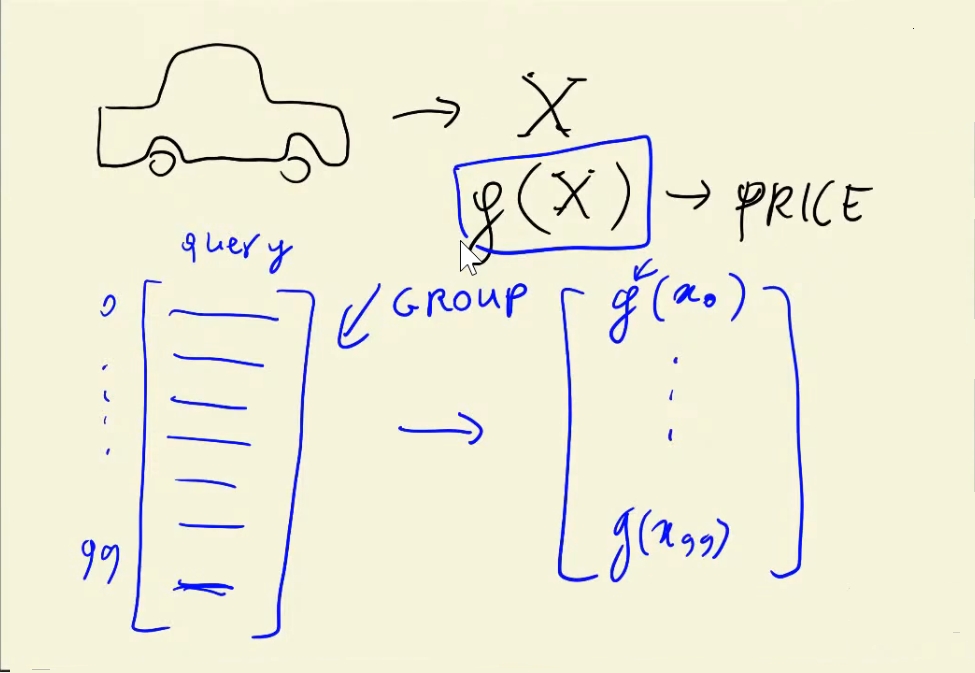 → X
g(X) → PRICE
query
0
99
GROUP
→
g(x₀)
g(x₉₉)